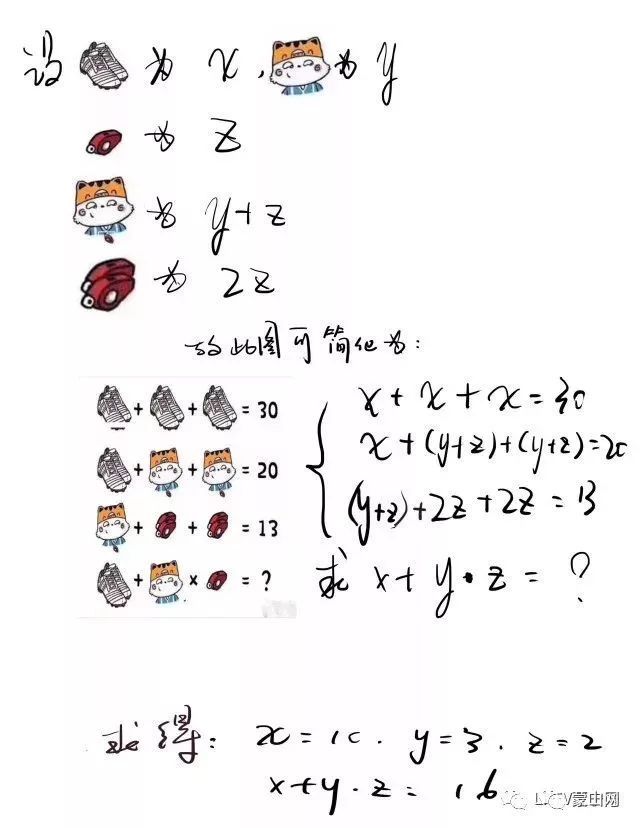 设 为 x, 为 y
为 z
为 y+z
为 2z
故此图可简化为:
+ + = 30
+ + = 20
+ + = 13
+ × = ?
x+x+x=30
x+(y+z)+(y+z)=20
(y+z)+2z+2z=13
求 x+y·z=?
求得: x=10. y=3. z=2
x+y·z=16
蒙由网